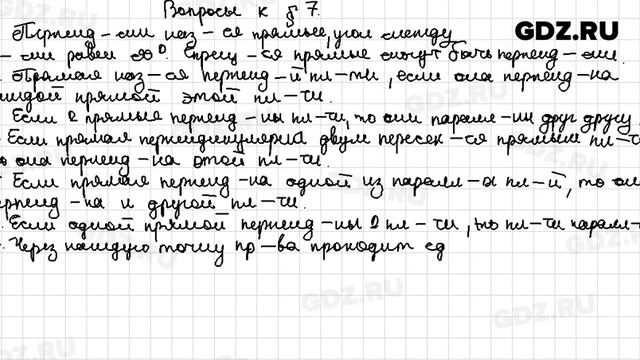 Вопросы к § 7.
GDZ.RU
Перпенд-ми наз-ся прямые, угол между
-ми равен 90°. Скрещ-ся прямые могут быть перпенд-ми.
Прямая наз-ся перпенд-й пл-ти, если она перпенд-на
каждой прямой этой пл-ти.
Если 2 прямые перпенд-ны пл-ти, то они паралл-ны друг другу.
Если прямая перпендикулярна двум пересек-ся прямым пл-ти
о она перпенд-на этой пл-ти.
Если прямая перпенд-на одной из паралл-х пл-й, то он
ерпенд-на и другой пл-ти.
Если одной прямой перпенд-ны 2 пл-ти, то пл-ти паралл-
Через каждую точку пр-ва проходит ед